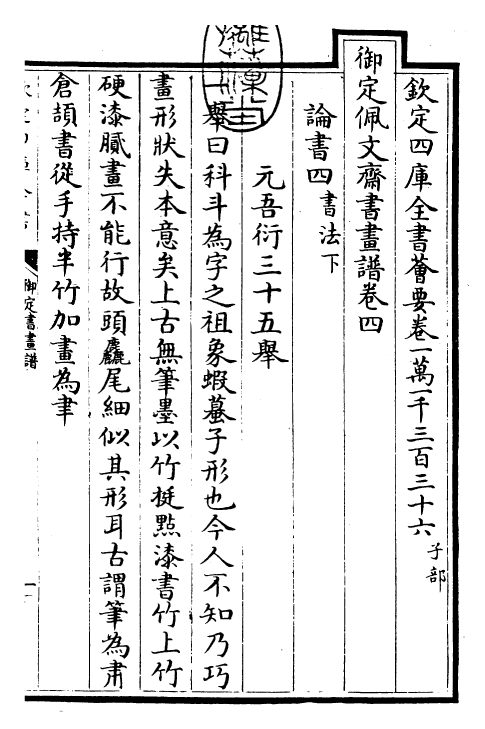 欽定四庫全書薈要卷一萬一千三百三十六 子部
御定佩文齋書畫譜卷四
論書四 書法下
元吾衍三十五舉
一舉曰科斗為字之祖象蝦蟇子形也今人不知乃巧
畫形狀失本意矣上古無筆墨以竹梃點漆書竹上竹
硬漆膩畫不能行故頭麤尾細似其形耳古謂筆為肀
倉頡書從手持半竹加畫為聿
御定書畫譜